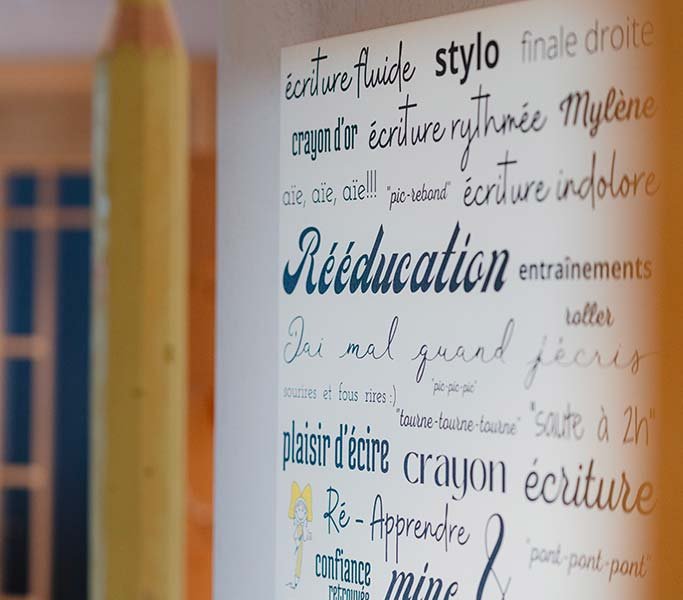 écriture fluide stylo finale droite
crayon d'or écriture rythmée Mylène
aïe, aïe, aïe!!! "pic-rebond" écriture indolore
Rééducation entraînements
roller
J'ai mal quand j'écris
sourires et fous rires :) "pic-pic-pic"
"tourne-tourne-tourne" "saute à 2h"
plaisir d'écire crayon écriture
Ré - Apprendre &
confiance "pont-pont-pont"
retrouvée mine